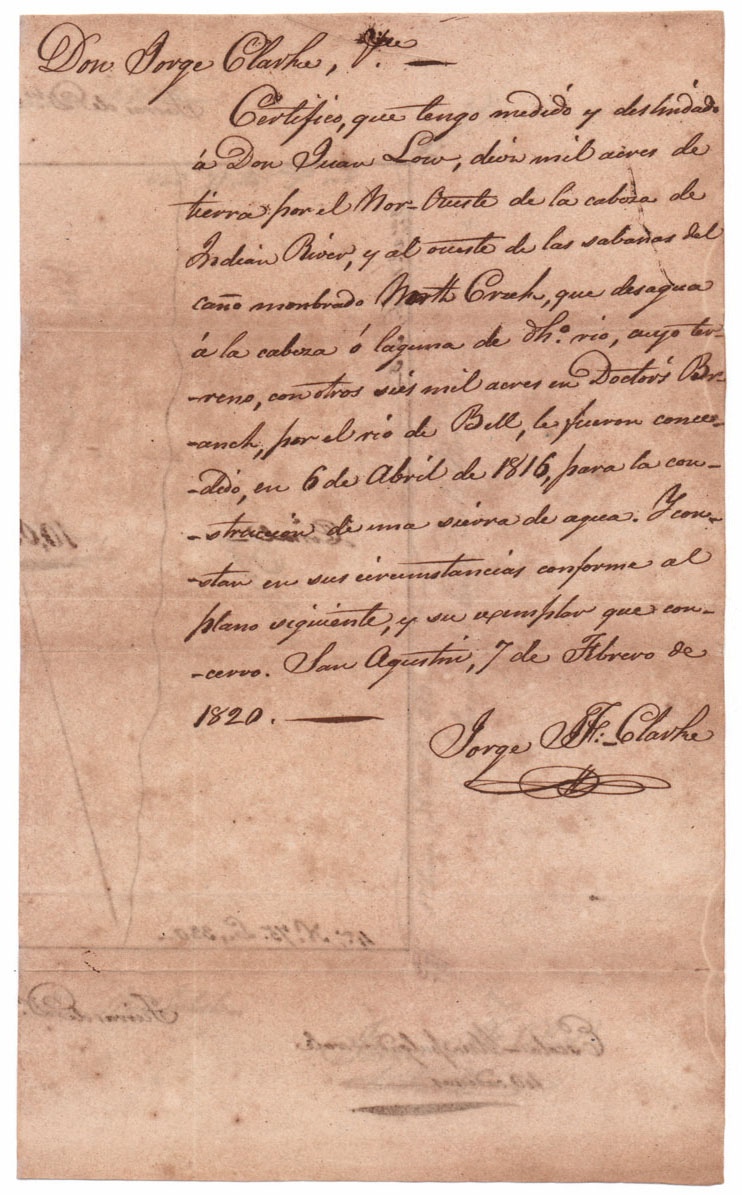 Don Jorge Clarke, &ce
Certifico, que tengo medido y deslindado
á Don Juan Low, diez mil acres de
tierra por el Nor-Oueste de la cabeza de
Indian River, y al oueste de las sabanas del
caño nombrado North Creek, que desagua
á la cabeza ó laguna de dho. rio, cuyo ter-
-reno, con otros sies mil acres en Doctors Br-
-anch, por el rio de Bell, le fueron conce-
-dido, en 6 de Abril de 1816, para la con-
-struccion de una sierra de agua. Y con-
-stan en sus circumstancias conforme al
plano siguiente, y su exemplar que con-
-cervo. San Agustin, 7 de Febrero de
1820.
Jorge J. F. Clarke